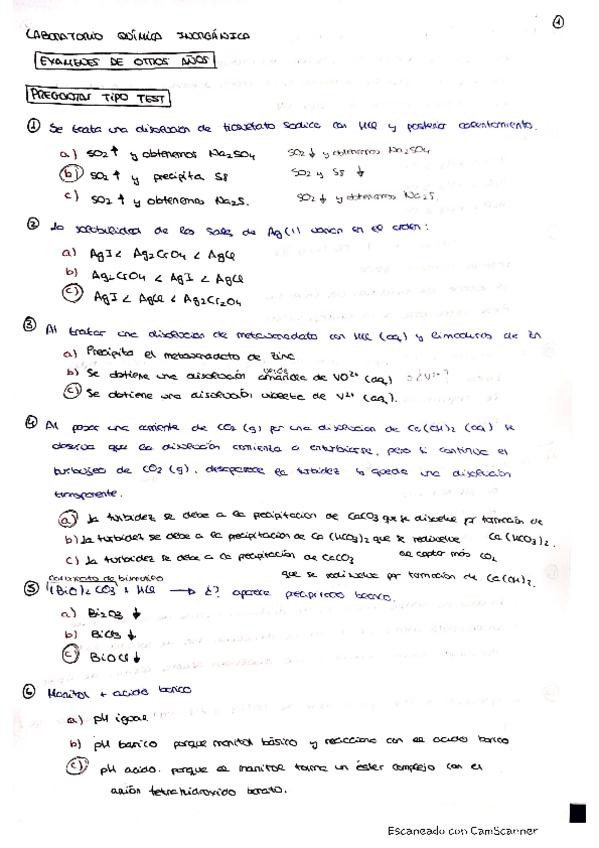 1
LABORATORIO QUÍMICA INORGÁNICA
EXAMENES DE OTROS AÑOS
PREGUNTAS TIPO TEST
① Se trata una disolución de tiosulfato sodico con HCl y posterior calentamiento.
a) SO2↑ y obtenemos Na2SO4 SO2↓ y obtenemos Na2SO4
b) SO2↑ y precipita S8 SO2 y S8 ↓
c) SO2↑ y obtenemos Na2S. SO2↓ y obtenemos Na2S.
② la solubilidad de las sales de Ag(I) varían en el orden:
a) AgI < Ag2CrO4 < AgCl
b) Ag2CrO4 < AgI < AgCl
c) AgI < AgCl < Ag2Cr2O4
③ Al tratar una disolución de metavanadato con HCl (aq) y limaduras de Zn
a) Precipita el metavanadato de zinc
b) Se obtiene una disolución amarilla de VO2+ (aq)
c) Se obtiene una disolución violeta de V2+ (aq).
④ Al pasar una corriente de CO2 (g) por una disolución de Ca(OH)2 (aq) se
observa que la disolución comienza a enturbiarse, pero si continua el
burbujeo de CO2 (g), desaparece la turbidez y queda una disolución
transparente.
a) la turbidez se debe a la precipitacion de CaCO3 que se disuelve por formación de
b) la turbidez se debe a la precipitación de Ca(HCO3)2 que se redisuelve Ca(HCO3)2.
c) la turbidez se debe a la precipitación de CaCO3 al captar más CO2
que se redisuelve por formación de Ca(OH)2.
carbonato de bismutilo
⑤ (BiO)2CO3 + HCl → ¿? aparece precipitado blanco.
a) Bi2O3 ↓
b) BiCl3 ↓
c) BiOCl ↓
⑥ Manitol + acido borico
a) pH igual
b) pH basico porque manitol básico y reacciona con el acido borico
c) pH acido. porque el manitol forma un éster complejo con el
anión tetrahidroxido borato.
Escaneado con CamScanner